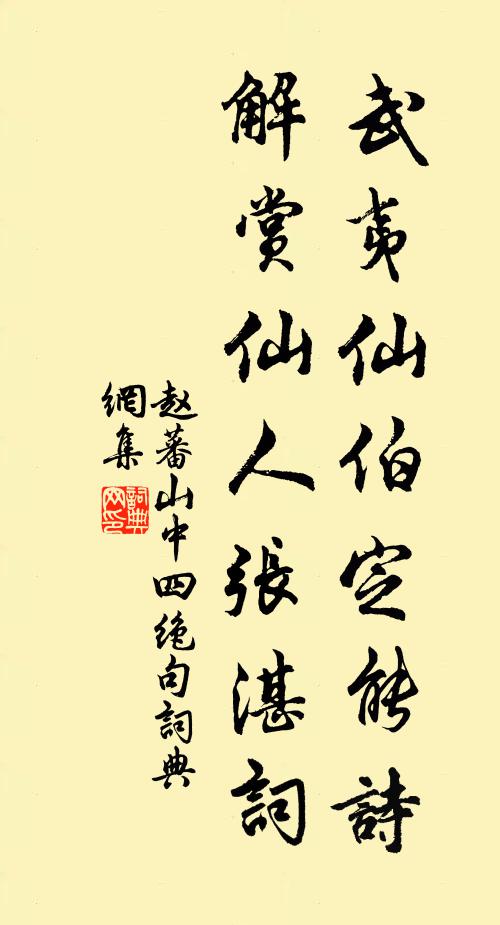 武夷仙伯定能詩
解賞仙人張湛詞
赵蕃山中四绝句詞典
網集
詞典
网印